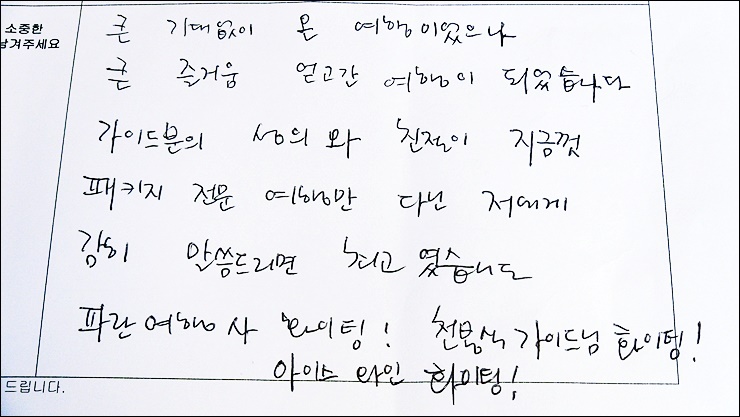 소중한
남겨주세요
큰 기대없이 온 여행이었으나
큰 즐거움 얻고간 여행이 되었습니다
가이드분의 성의와 친절이 지금껏
패키지 전문 여행만 다닌 저에게
감히 말씀드리면 최고 였습니다
파란여행사 화이팅! 천봉식 가이드님 화이팅!
아이스 와인 화이팅!
드립니다.